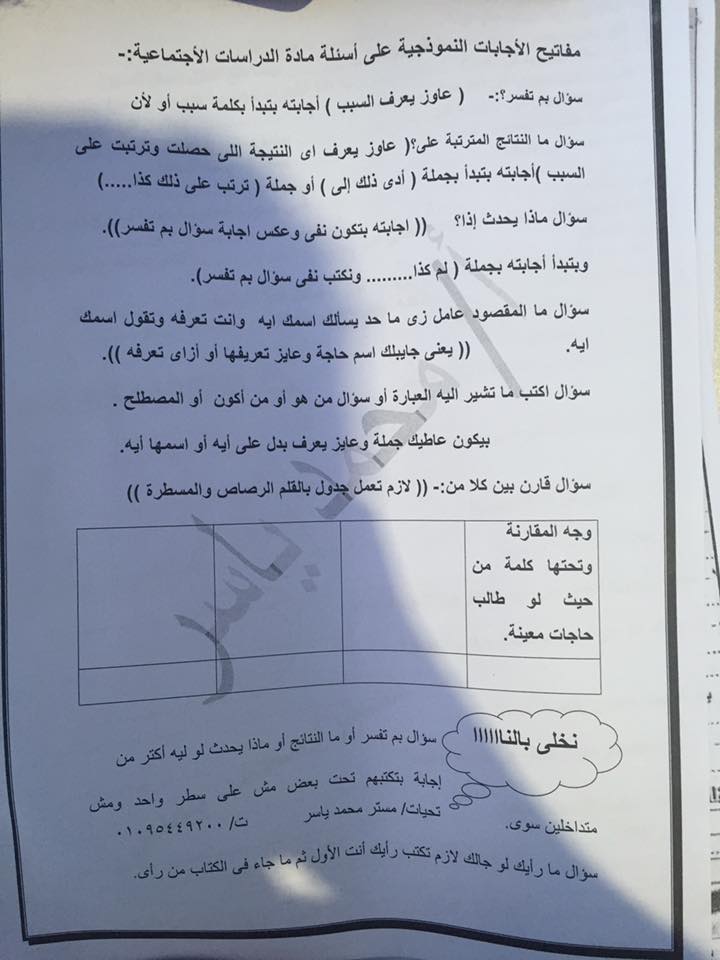 مفاتيح الأجابات النموذجية على أسئلة مادة الدراسات الأجتماعية:-
سؤال بم تفسر؟:- ( عاوز يعرف السبب ) أجابته بتبدأ بكلمة سبب أو لأن
سؤال ما النتائج المترتبة على؟( عاوز يعرف اى النتيجة اللى حصلت وترتبت على
السبب )أجابته بتبدأ بجملة ( أدى ذلك إلى ) أو جملة ( ترتب على ذلك كذا.....)
سؤال ماذا يحدث إذا؟ (( اجابته بتكون نفى وعكس اجابة سؤال بم تفسر)).
وبتبدأ أجابته بجملة ( لم كذا......... ونكتب نفى سؤال بم تفسر).
سؤال ما المقصود عامل زى ما حد يسألك اسمك ايه وانت تعرفه وتقول اسمك
ايه. (( يعنى جايبلك اسم حاجة وعايز تعريفها أو أزاى تعرفه )).
سؤال اكتب ما تشير اليه العبارة أو سؤال من هو أو من أكون أو المصطلح .
بيكون عاطيك جملة وعايز يعرف بدل على أيه أو اسمها أيه.
سؤال قارن بين كلا من:- (( لازم تعمل جدول بالقلم الرصاص والمسطرة ))
وجه المقارنة
وتحتها كلمة من
حيث لو طالب
حاجات معينة.
أ/ محمد ياسر
نخلى بالناااااا
سؤال بم تفسر أو ما النتائج أو ماذا يحدث لو ليه أكتر من
إجابة بتكتبهم تحت بعض مش على سطر واحد ومش
متداخلين سوى. تحيات/ مستر محمد ياسر ت/ ٠١٠٩٥٤٤٩٢٠٠
سؤال ما رأيك لو جالك لازم تكتب رأيك أنت الأول ثم ما جاء فى الكتاب من رأى.